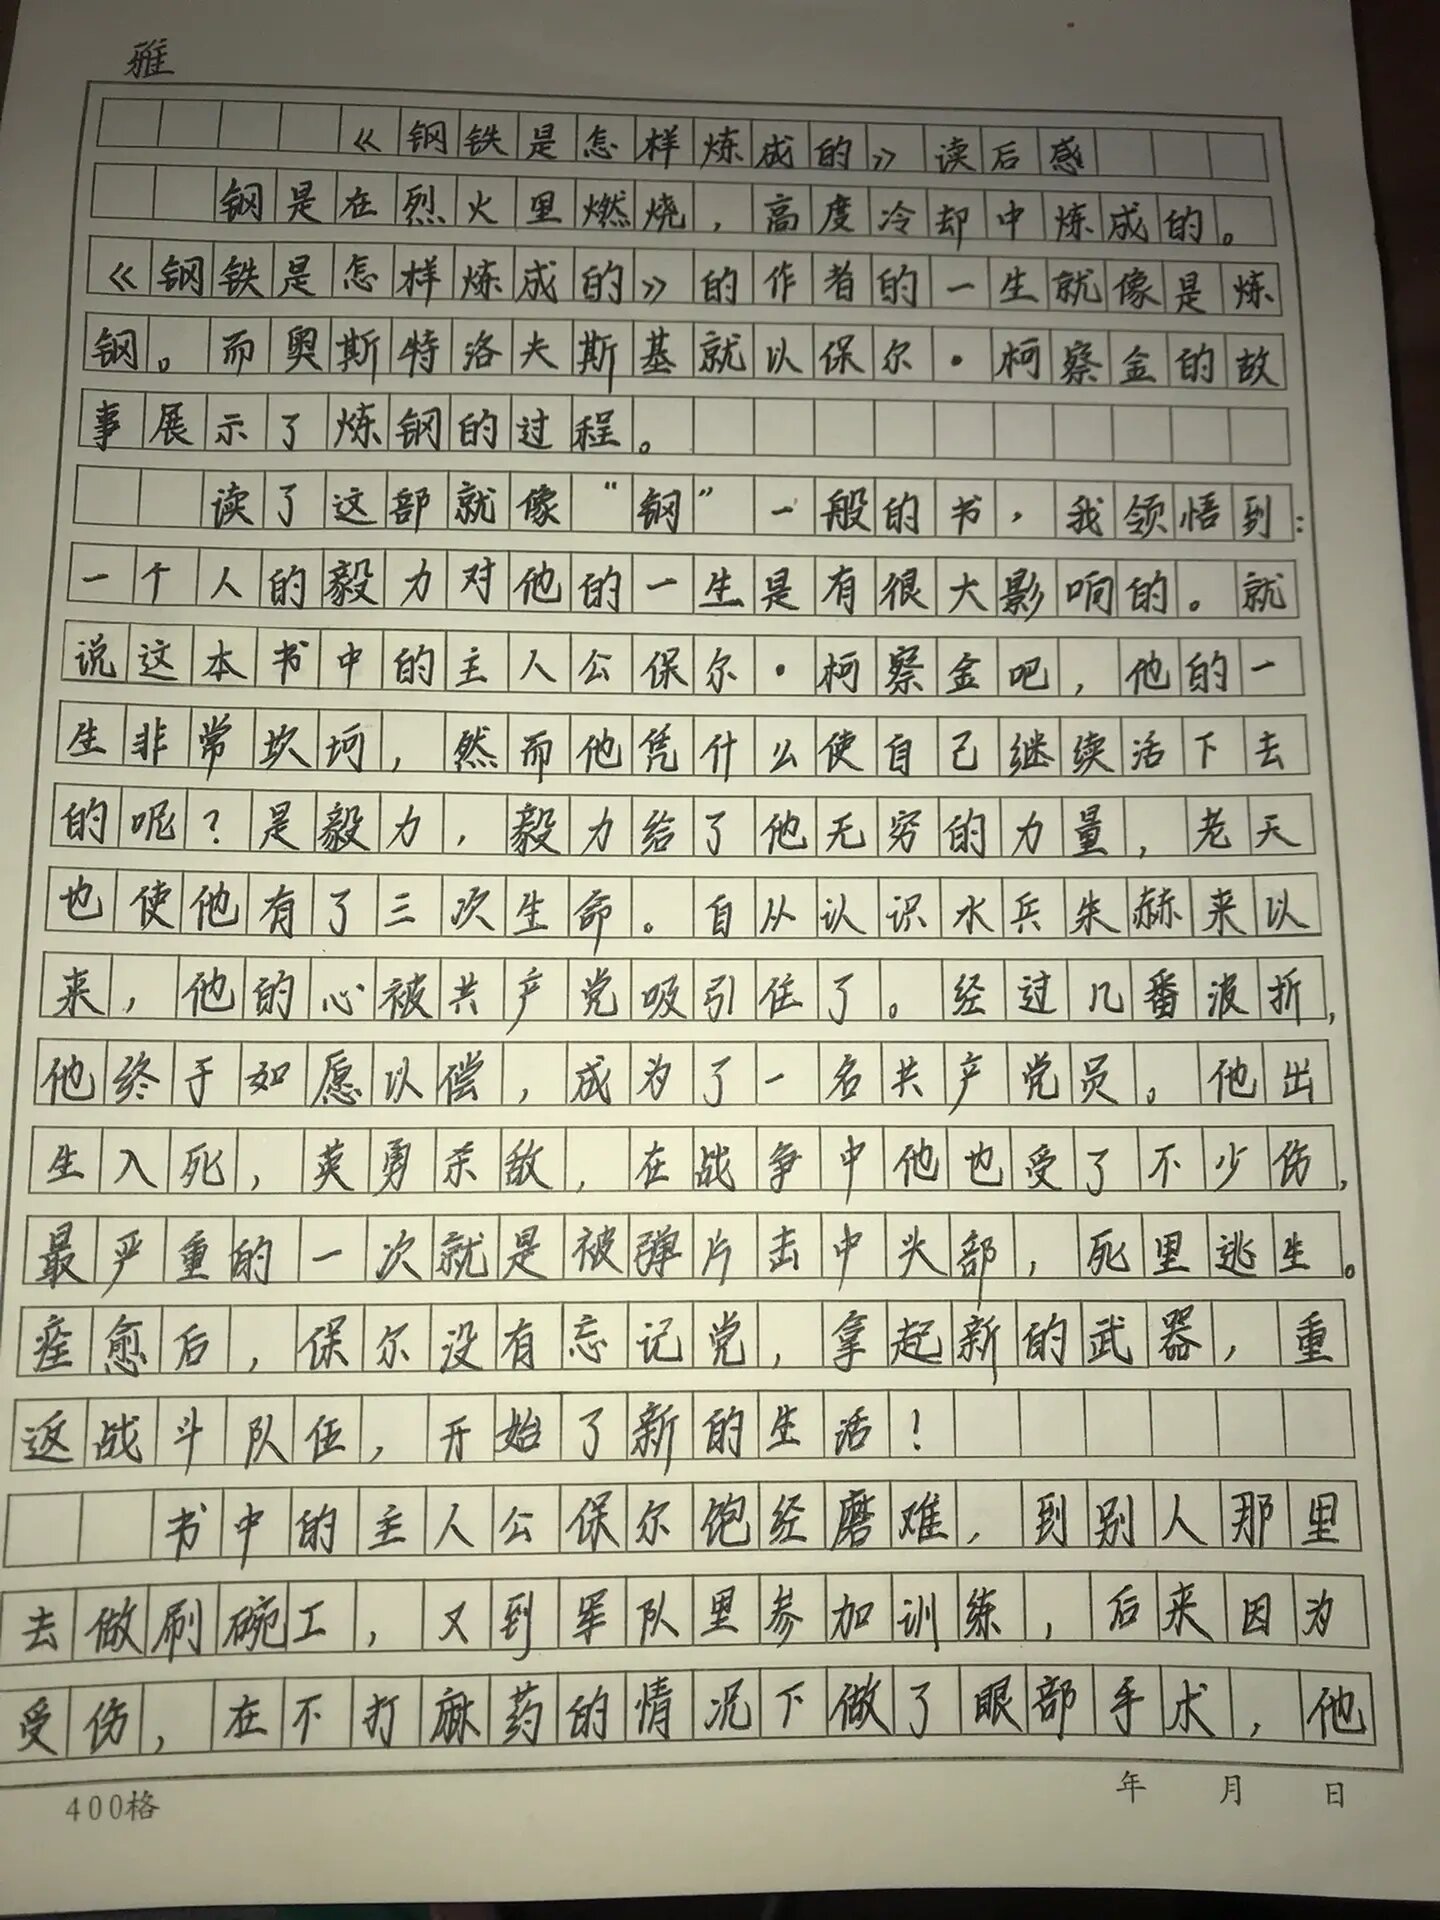 雅
《钢铁是怎样炼成的》读后感
钢是在烈火里燃烧，高度冷却中炼成的。
《钢铁是怎样炼成的》的作者的一生就像是炼
钢。而奥斯特洛夫斯基就以保尔·柯察金的故
事展示了炼钢的过程。
读了这部就像“钢”一般的书，我领悟到：
一个人的毅力对他的一生是有很大影响的。就
说这本书中的主人公保尔·柯察金吧，他的一
生非常坎坷，然而他凭什么使自己继续活下去
的呢？是毅力，毅力给了他无穷的力量，老天
也使他有了三次生命。自从认识水兵朱赫来以
来，他的心被共产党吸引住了。经过几番波折，
他终于如愿以偿，成为了一名共产党员。他出
生入死，英勇杀敌，在战争中他也受了不少伤，
最严重的一次就是被弹片击中头部，死里逃生。
痊愈后，保尔没有忘记党，拿起新的武器，重
返战斗队伍，开始了新的生活！
书中的主人公保尔饱经磨难，到别人那里
去做刷碗工，又到军队里参加训练，后来因为
受伤，在不打麻药的情况下做了眼部手术，他
400格
年 月 日